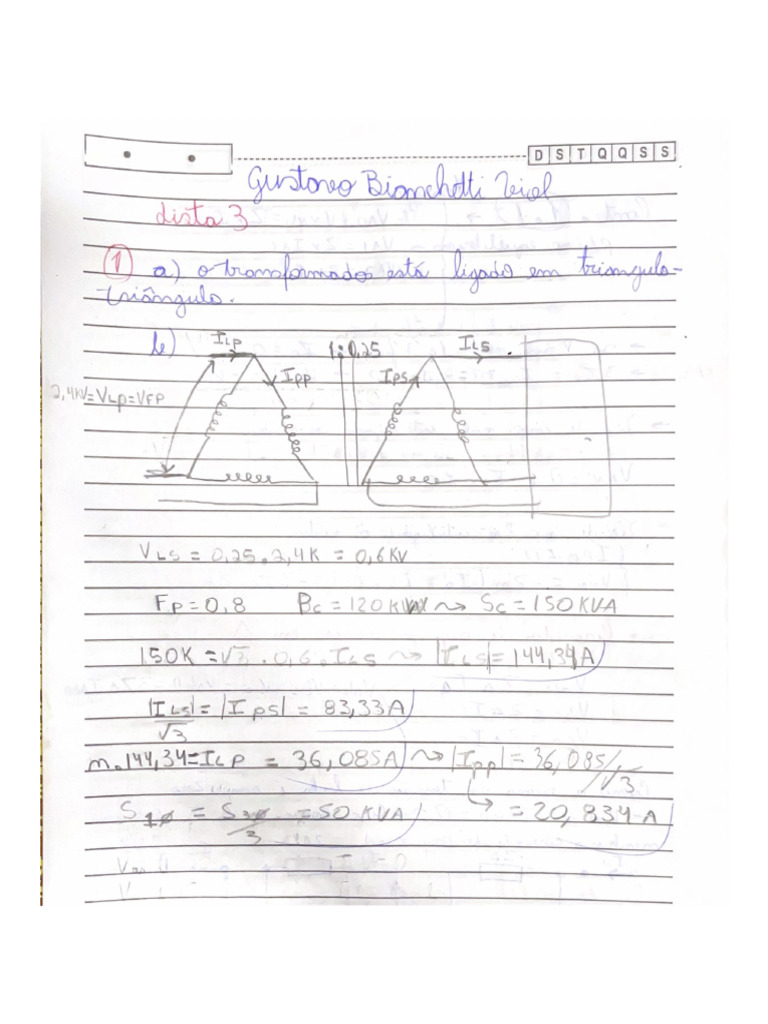 D S T Q Q S S
Gustavo Bianchotti
Lista 3
1 a) o transformador está ligado em triangulo-
triângulo.
b) ILP 1:0,25 ILS
IPP IPS
2,4KV=VLP=VFP
VLS = 0,25.2,4K = 0,6KV
FP=0,8 PC=120KW ⤳ SC=150KVA
150K = √3 . 0,6 . ILS ⤳ |ILS|=144,34A
|ILS|/√3 = |IPS| = 83,33A
m.144,34=ILP = 36,085A ⤳ |IPP|=36,085/√3
S1Ø = S3Ø/3 = 50 KVA ↳ = 20,834 A